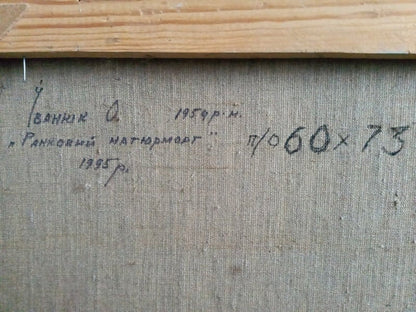 Іванюк О. 1954 р.н.
„Ранковий натюрморт". п/о 60 х 73
1995 р.